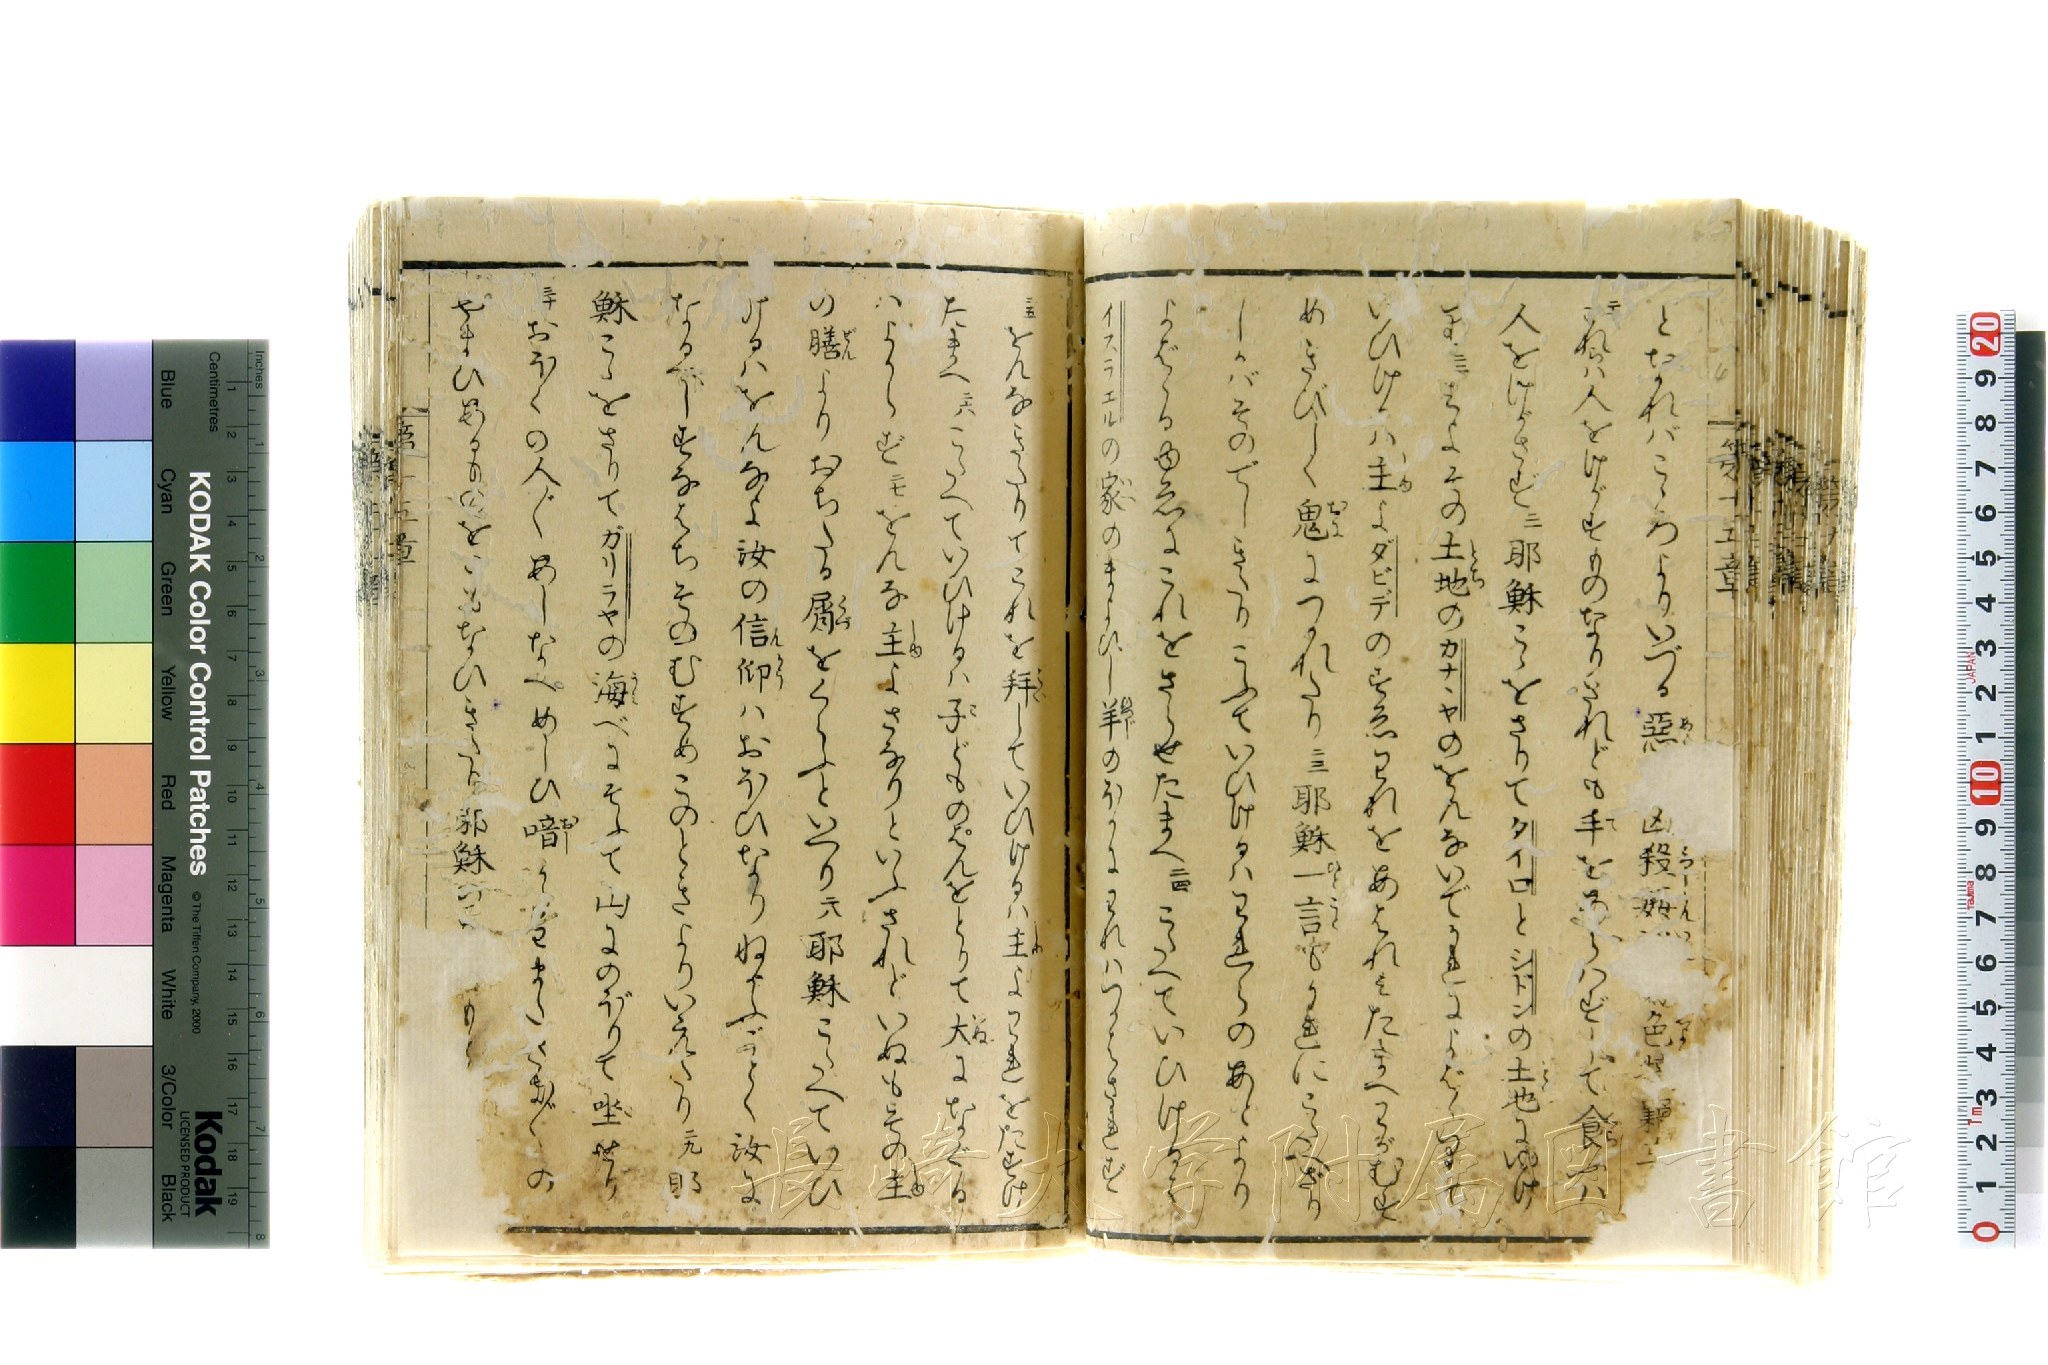 となれバこゝろよりいづる惡 凶殺姦 色
二十 これハ人をけがすものなりされども手をあらハずして食ハ
人をけがさず 二一 耶穌こゝをさりてタイロとシドンの土地にゆけ
り 二二 その土地のカナンヤのをんないでかれによばゝりて
いひけるハ主よダビデのすゑわれをあはれみたまへわがむす
めきびしく鬼につかれたり 二三 耶穌一言もかれにこたへざり
しかバそのでしきたりこふていひけるハかれらのあとより
よばゝるゆゑにこれをさらせたまへ 二四 こたへていひけるハ
イスラエルの家のまよひし羊のほかにわれハつかはされず
二五 をんなきたりてこれを拜していひけるハ主よわれをたすけ
たまへ 二六 こたへていひけるハ子どものぱんをとりて犬になぐる
ハよからず 二七 をんな主よさなりといふされどいぬもその主
の膳よりおちたる屑をくらふといへり 二八 耶穌こたへていひ
けるハをんなよ汝の信仰ハおほひなりねがふごとく汝に
なるべしすなはちそのむすめこのときよりいえたり 二九 耶
穌こゝをさりてガリラヤの海べにそふて山にのぼりて坐せり
三十 おほくの人〴〵あしなへめしひ瘖 またさま〴〵の
やまひあるものをともなひきたり耶穌の
第十五章
第十五章
長崎大学附属図書館
KODAK Color Control Patches
©The Tiffen Company, 2000
Kodak
LICENSED PRODUCT
Inches
Centimetres
Blue
Cyan
Green
Yellow
Red
Magenta
White
3/Color
Black
JAPAN
Tajima